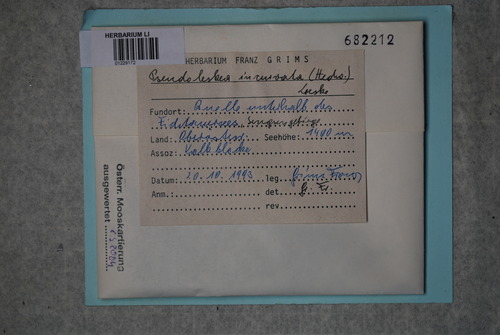 HERBARIUM LI
682212
HERBARIUM FRANZ GRIMS
Pseudoleskea incurvata (Hedw.)
Loeske
Fundort: Quelle unterhalb des
Land: Oberösterr. Seehöhe: 1400 m
Assoz: Kalkblöcke
Datum: 20.10.1993 leg. Grims Franz
Anm.: det G. F.
rev.
Österr. Mooskartierung
ausgewertet